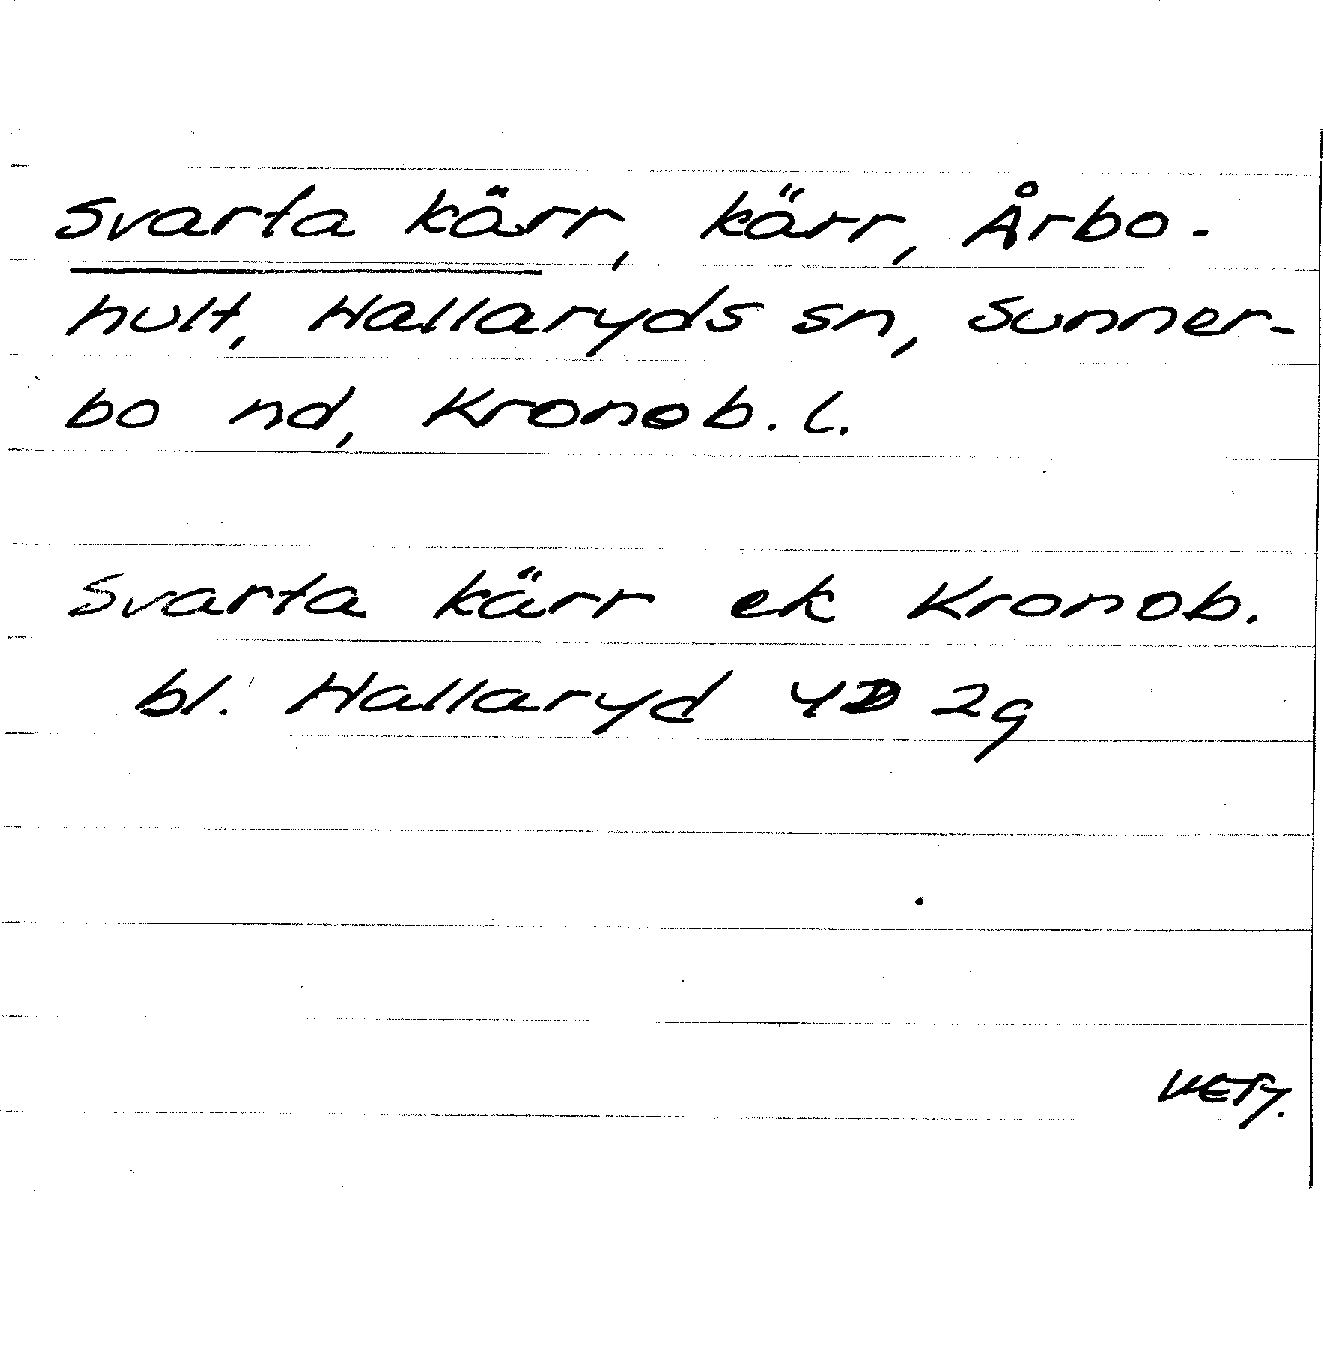 Svarta kärr, kärr, Årbo-
hult, Hallaryds sn, Sunner-
bo hd, Kronob. l.
Svarta kärr ek Kronob.
bl. Hallaryd 4D 2g